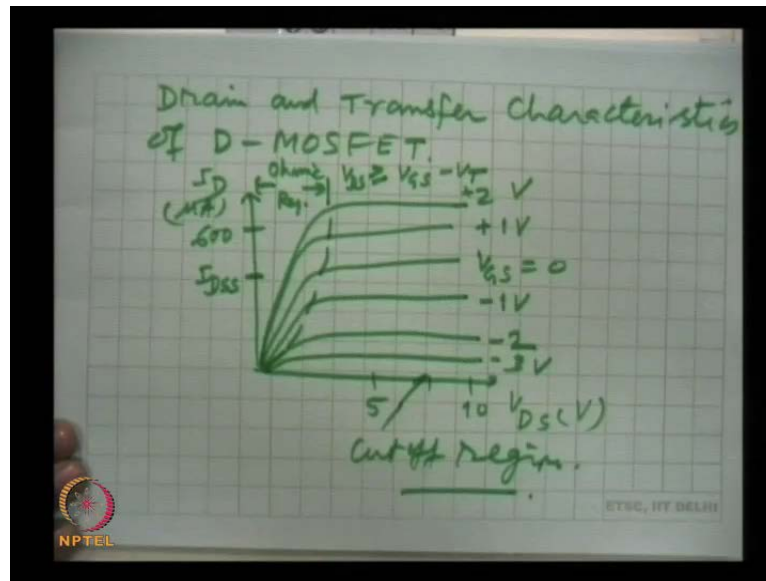 Drain and Transfer Characteristics
of D-MOSFET.
I_D
(MA)
Ohmic
Reg.
V_DS ≥ V_GS - V_T
+2 V
600
+1V
I_DSS
V_GS = 0
-1V
-2
-3V
5
10
V_DS (V)
Cutoff Region.
ETSC, IIT DELHI
NPTEL